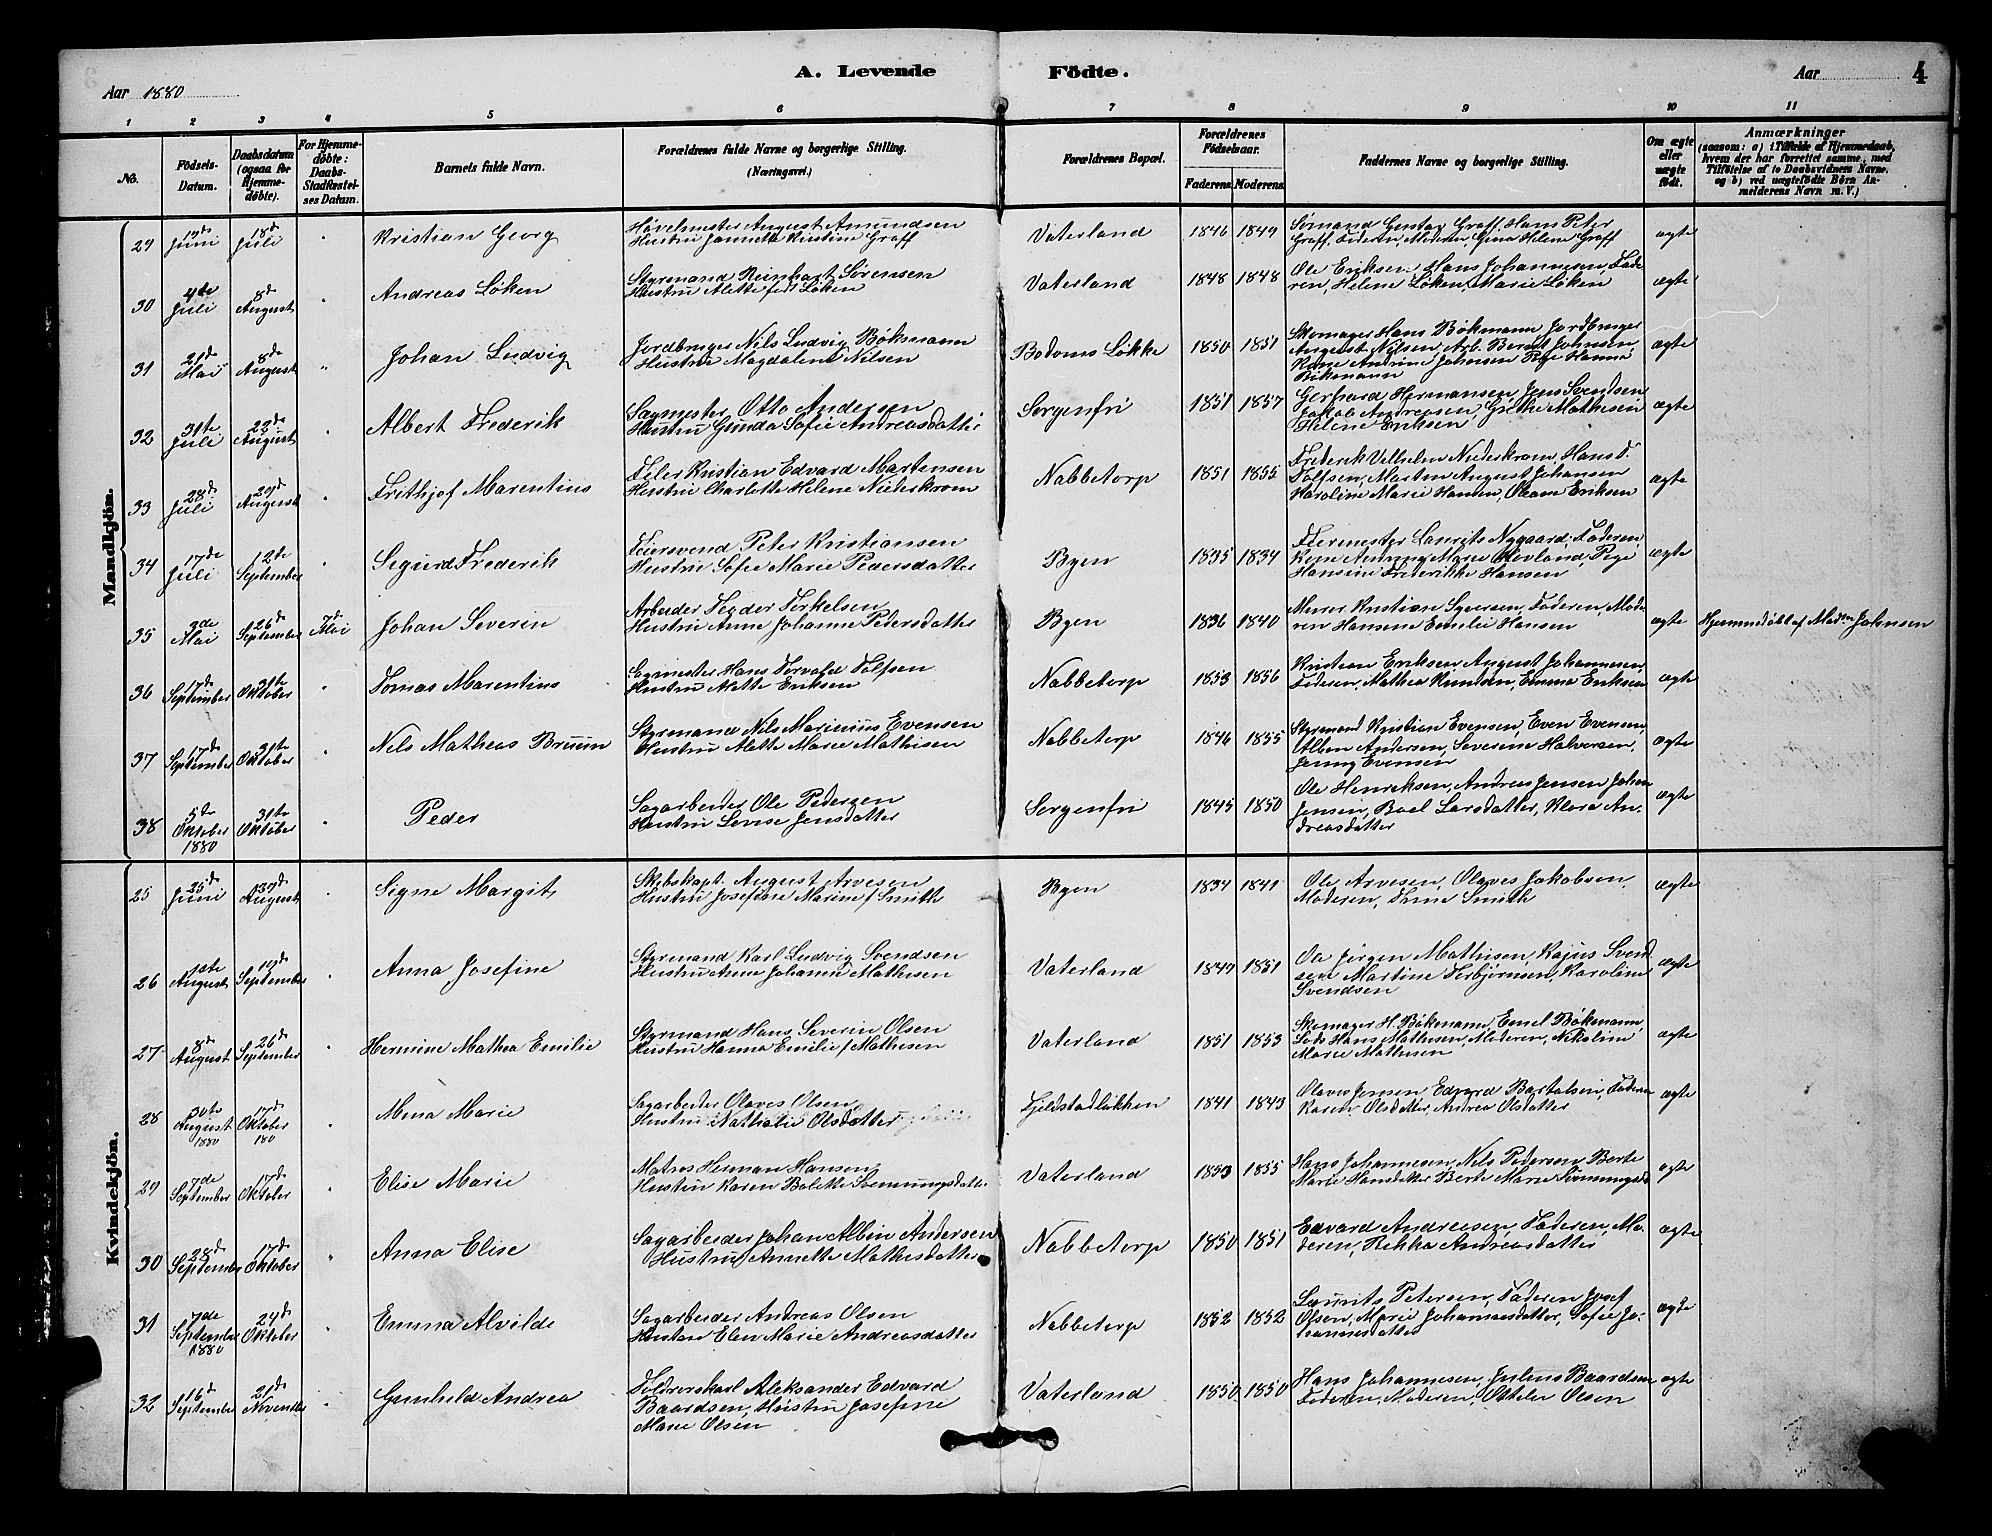 A. Levende Födte.
Aar 1880
Aar 4
1 2 3 4 5 6 7 8 9 10 11
No.
Födsels-Datum.
Daabsdatum (ogsaa for Hjemmedöbte).
For Hjemmedöbte: Daabs-Stadfæstelses Datum.
Barnets fulde Navn.
Forældrenes fulde Navne og borgerlige Stilling. (Næringsvei.)
Forældrenes Bopæl.
Forældrenes Födselsaar. Faderens Moderens
Faddernes Navne og borgerlige Stilling.
Om ægte eller uægte födt.
Anmærkninger (saasom: a) i Tilfælde af Hjemmedaab, hvem der har forrettet samme, med Tilföielse af to Daabsvidners Navne, og b) ved uægtefödte Börn Anmelderens Navn m. V.)
Mandkjön.
29 Juni 18de Juli Kristian Georg
Høvelmester August Amundsen
Hustru Jannette Kristine Graff
Vaterland 1846 1849
Sømand Gustav Graff, Hans Peter
Graff, Faderen, Moderen, Gina Helene Graff
ægte
30 4de Juli 8de August Andreas Løken
Styrmand Reinhart Sørensen
Hustru Mette født Løken
Vaterland 1848 1848
Ole Eriksen, Hans Johannesen, Fade
ren, Helene Løken, Marie Løken
ægte
31 21de Mai 8de August Johan Ludvig
Jordbruger Nils Ludvig Bökmann
Hustru Magdalene Nilsen
Bodoms Løkke 1850 1851
Skomager Hans Bökmann, Jordbruger
August Nilsen, Arb. Bernt Johnsen,
Kone Andrine Johnsen, Pige Hanna
Bökmann
ægte
32 31te Juli 22de August Albert Frederik
Sagmester Otto Andersen
Hustru Gunda Sofie Andreasdatter
Sorgenfri 1851 1857
Gerhard Hermansen, Jens Svendsen
Jakob Andreasen, Grethe Mathisen
Helene Eriksen
ægte
33 28de Juli 29de August Frithjof Marentius
Filer Kristian Edvard Martinsen
Hustru Charlotte Helene Niederskrom
Nabbetorp 1851 1855
Frederik Vilhelm Niederskrom, Hans T.
Tolfsen, Martin August Johansen
Karoline Marie Hansen, Olane Eriksen
ægte
34 17de Juli 12te September Sigurd Frederik
Feiersvend Peter Kristiansen
Hustru Sofie Marie Pedersdatter
Byen 1835 1834
Feiermester Laurits Nygaard, Faderen
Kone Amunny Marie Hovland, Pige
Hansine Frederikke Hansen
ægte
35 3de Mai 26de September Mai Johan Severin
Arbeider Teodor Terkelsen
Hustru Anne Johanne Pedersdatter
Byen 1836 1840
Murer Kristian Syversen, Faderen, Mode
ren Hansine Emilie Hansen
ægte Hjemmedøbt af Madm Johnsen
36 17de September 31te Oktober Tomas Marentius
Sagmester Hans Torvald Tolfsen
Hustru Mette Eriksen
Nabbetorp 1853 1856
Kristian Eriksen, August Johannesen,
Faderen, Mathea Knudsen, Emma Eriksen
ægte
37 17de September 31te Oktober Nils Matheas Bruun
Styrmand Nils Marinius Evensen
Hustru Mette Marie Mathisen
Nabbetorp 1846 1855
Styrmand Kristian Evensen, Even Evensen,
Alben Andersen, Severine Halversen,
Jenny Evensen
ægte
38 5de Oktober 1880 31te Oktober Peder
Sagarbeider Ole Pedersen
Hustru Lovise Jensdatter
Sorgenfri 1845 1850
Ole Henriksen, Andreas Jensen, Johan
Jensen, Boel Larsdatter, Klara An-
dreasdatter
ægte
Kvindekjön.
25 25de Juni 29de August Signe Margit
Skibskapt. August Arvesen
Hustru Josefine Marine f Smith
Byen 1834 1841
Ole Arvesen, Olaves Jakobsen,
Moderen, Trine Smith
ægte
26 1ste August 19de September Anna Josefine
Styrmand Karl Ludvig Svendsen
Hustru Anne Johanne Mathisen
Vaterland 1849 1851
Ole Jørgen Mathisen, Kajus Svend
sen Martine Torbjørnsen, Karoline
Svendsen
ægte
27 8de August 26de September Hermine Mathea Emilie
Styrmand Hans Severin Olsen
Hustru Hanna Emilie f Mathisen
Vaterland 1851 1853
Skomager H. Bökmann, Emil Bökmann,
Lods Hans Mathisen, Moderen, Nikoline
Marie Mathisen
ægte
28 30te August 1880 17de Oktober 180 Mina Marie
Sagarbeider Olaves Olsen
Hustru Nathalie Olsdatter
Fjeldstadløkken 1841 1843
Olaves Jensen, Edvard Bartolsen, Faderen
Karen Olsdatter, Andrea Olsdatter
ægte
29 7de September 17de Oktober Elise Marie
Matros Herman Hansen,
Hustru Karen Bolette Sæmmungsdatter
Vaterland 1853 1855
Hans Johannesen, Nils Pedersen Berte
Marie Hansdatter Berte Marie
ægte
30 28de September 17de Oktober Anna Elise
Sagarbeider Johan Albin Andersen
Hustru Annette Mathisdatter
Nabbetorp 1850 1851
Edvard Andreasen, Faderen, Mo-
deren, Rikka Andreasdatter
ægte
31 7de September 1880 24de Oktober Emma Alvilde
Sagarbeider Andreas Olsen
Hustru Elen Marie Andreasdatter
Nabbetorp 1852 1852
Laurits Petersen, Faderen Josef
Olsen, Marie Johannesdatter, Sofie Jo-
hannesdatter
ægte
32 16de September 21de November Gunhild Andrea
Toldrorskarl Aleksander Edvard
Baardsen, Hustru Josefine
Marie Olsen
Vaterland 1850 1850
Hans Johannesen, Julius Baardsen
Faderen, Moderen, Ottilie Olsen
ægte